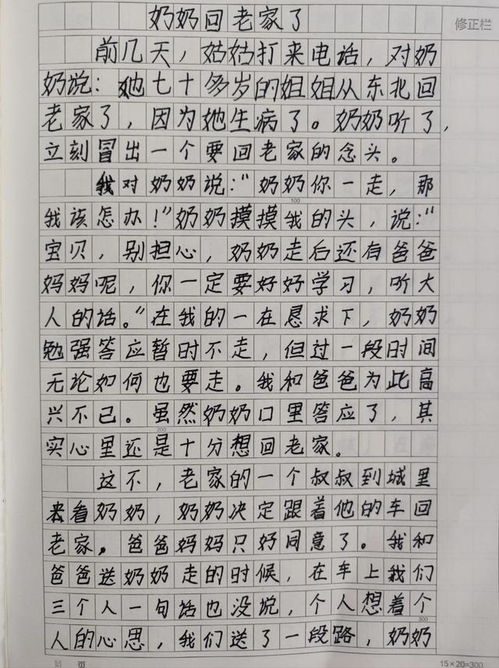 奶奶回老家了
修正栏
前几天，姑姑打来电话，对奶
奶说：她七十多岁的姐姐从东北回
老家了，因为她生病了。奶奶听了，
立刻冒出一个要回老家的念头。
我对奶奶说："奶奶你一走，那
100
我该怎办！"奶奶摸摸我的头，说："
宝贝，别担心，奶奶走后还有爸爸
妈妈呢，你一定要好好学习，听大
人的话。"在我的一在恳求下，奶奶
勉强答应暂时不走，但过一段时间
无论如何也要走。我和爸爸为此高
兴不已。虽然奶奶口里答应了，其
200
实心里还是十分想回老家。
这不，老家的一个叔叔到城里
来看奶奶，奶奶决定跟着他的车回
老家。爸爸妈妈只好同意了。我和
爸爸送奶奶走的时候，在车上我们
三个人一句话也没说，个人想着个
300
人的心思，我们送了一段路，奶奶
页
15×20=300